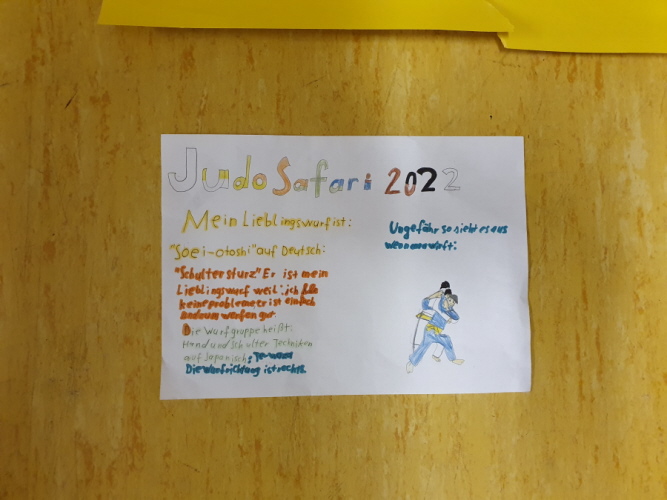 Judo Safari 2022
Mein Lieblingswurf ist:
"Soei-otoshi" auf Deutsch:
"Schultersturz" Er ist mein
Lieblingswurf weil: ich
keine probleme er ist einfach
und gut.
Die Wurfgruppe heißt:
Hand und Schulter Techniken
auf Japanisch: Te-waza
Die Wurfrichtung ist rechts.
Ungefähr so sieht es aus
wenn man wirft: